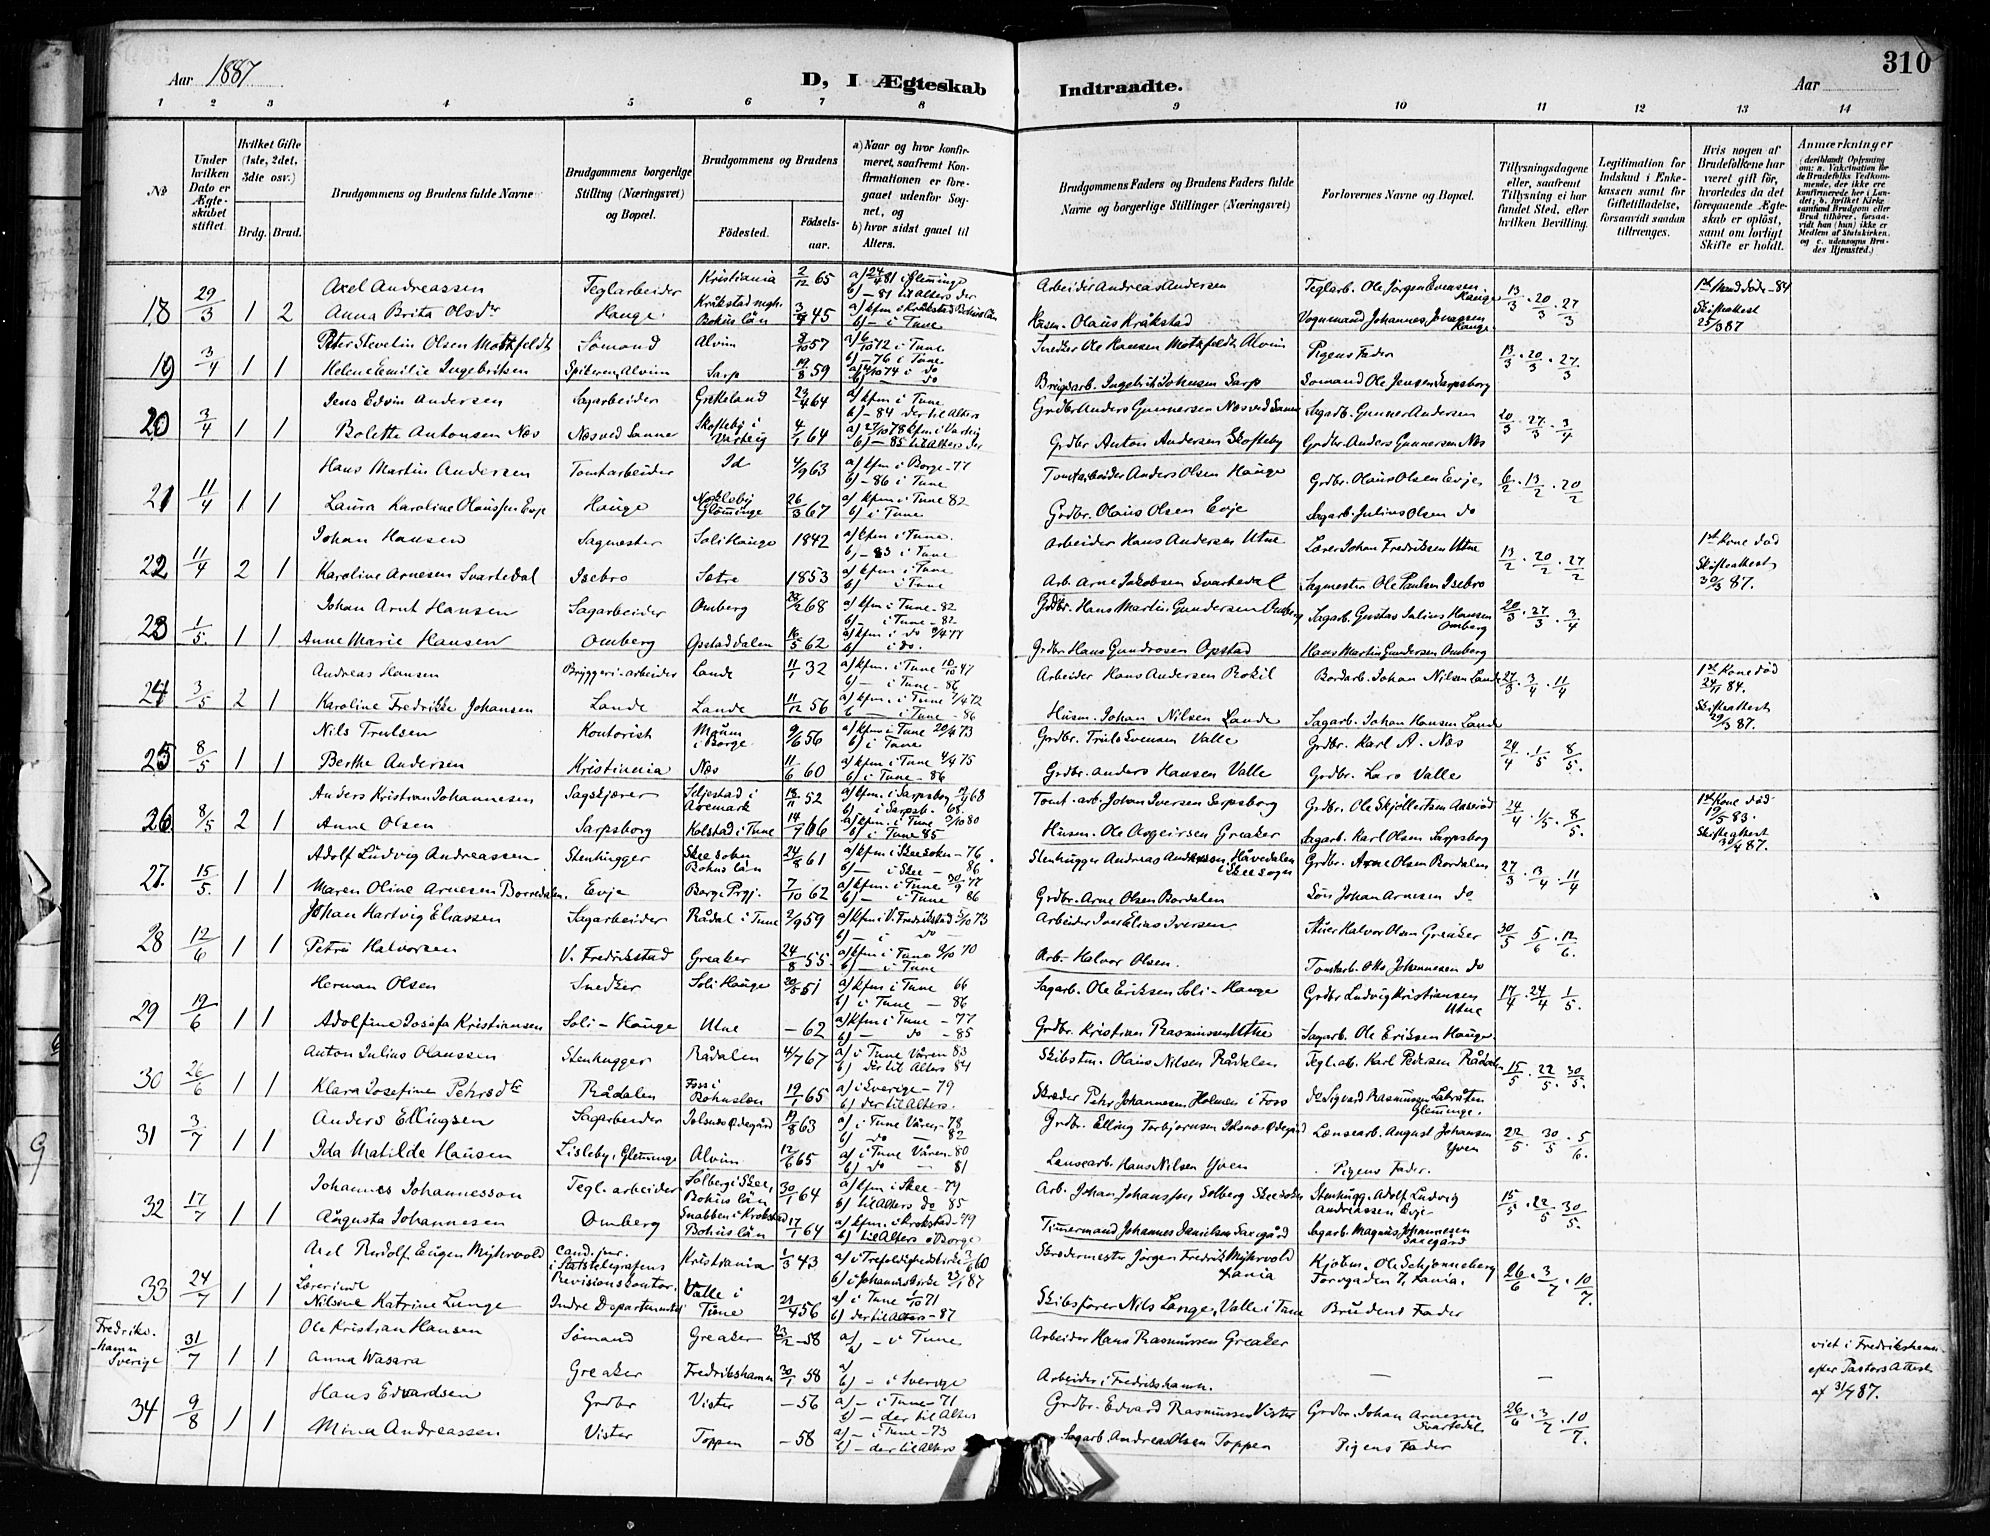 310
Aar 1887.
D, I Ægteskab Indtraadte.
Aar
1 2 3 4 5 6 7 8 9 10 11 12 13 14
No
Under hvilken Dato er Ægteskabet stiftet.
Hvilket Gifte (1ste, 2det, 3die osv.)
Brdg. Brud.
Brudgommens og Brudens fulde Navne
Brudgommens borgerlige Stilling (Næringsvei) og Bopæl.
Brudgommens og Brudens
Födested. Födsels-aar.
a) Naar og hvor konfirmeret, saafremt Konfirmationen er foregaaet udenfor Sognet, og
b) hvor sidst gaaet til Alters.
Brudgommens Faders og Brudens Faders fulde Navne og borgerlige Stillinger (Næringsvei)
Forlovernes Navne og Bopæl.
Tillysningsdagene eller, saafremt Tillysning ei har fundet Sted, efter hvilken Bevilling.
Legitimation for Indskud i Enkekassen samt for Giftetilladelse, forsaavidt saadan tiltrænges.
Hvis nogen af Brudefolkene har været gift för, hvorledes da det foregaaende Ægteskab er oplöst, samt om lovligt Skifte er holdt.
Anmærkninger
(deriblandt Oplysning om: a. Vakcination for de Brudefolks Vedkommende, der ikke ere konfirmerede her i Landet; b. hvilket Kirkesamfund Brudgom eller Brud tilhörer, forsaavidt han (hun) ikke er Medlem af Statskirken, og c. udensogns Brudes Hjemsted.)
18 29/3 1 2 Axel Andreassen Teglarbeider Kristiania 2/12 65 Arbeider Andreas Andersen Teglarb. Ole Jörgen Evensen Hauge 13/3 · 20/3 · 27/3 1st Mand döde -84
Anna Brita Olsdr Hauge Bohuslän 45 b) - i Tune Olaus Kråkstad Vognmand Johannes Hauge Skifteattest 25/3 87
19 3/4 1 1 Olsen Sömand Alvim 9/10 57 72 i Tune b) -76 i Tune Snedker Ole Hansen Alvim Pigens Fader 13/3 · 20/3 · 27/3
Helene Emilie Ingebritsen Alvim Sarp 19/8 59 74 i do b) - do Ingebrikt Johnsen Sarp Sömand Ole Jensen Sarpsborg
20 3/4 1 1 Jens Edvin Andersen Sagarbeider Grökeland 23/4 64 a) kfm i Tune b) -84 der til Alters Grdbr Anders Gunnersen Næs ved Sanne Sagarb. Gunner Andersen 20/3 · 27/3 · 3/4
Bolette Antonsen Næs Næs ved Sanne Skofteby i Varteig 4/1 64 a) 27/10 78 kfm i Varteig b) -85 til Alters der Grdbr Anton Andersen Skofteby Grdbr Anders Gunnersen Næs
21 11/4 1 1 Hans Martin Andersen Tomtarbeider Id 4/9 63 a) kfm i Borge -77 b) -86 i Tune Tomtarbeider Anders Olsen Hauge Grdbr. Olaus Olsen Evje 6/2 · 13/2 · 20/2
Laura Karoline Olaussen Evje Hauge Glemminge 26/3 67 a) kfm i Tune 82 b) i Tune Grdbr. Olaus Olsen Evje Sagarb. Julius Olsen do
22 11/4 2 1 Johan Hansen Sagmester Soli Hauge 1842 a) kfm i Tune. b) -83 i Tune Arbeider Hans Andersen Utne Lærer Johan Fredriksen Utne 13/2 · 20/2 · 27/2 1st Kone död
Karoline Arnesen Svartedal Isebro Sætre 1853 a) kfm i Tune b) - i Tune Arb. Arne Jakobsen Svartedal Sagmester Ole Paulsen Isebro Skifteattest 30/3 87.
23 1/5 1 1 Johan Arnt Hansen Sagarbeider Omberg 20/2 68 a) kfm i Tune -82 b) - i Tune -82 Grdbr. Hans Martin Gundersen Omberg Sagarb. Gustav Julius Hansen Omberg 20/3 · 27/3 · 3/4
Anne Marie Hansen Omberg Opstaddalen 16/5 62 a) kfm i do b) i do. Grdbr Hans Gundrosen Opstad Hans Martin Gundersen Omberg
24 3/5 2 1 Andreas Hansen Bryggeri-arbeider Lande 11/1 32 a) kfm. i Tune 10/10 47 b) - i Tune -86 Arbeider Hans Andersen Rokil Bordarb. Johan Nilsen Lande 27/3 · 3/4 · 11/4 1st Kone död 24/11 84.
Karoline Fredrikke Johansen Lande Lande 11/12 56 a) kfm. i Tune b) - i Tune -86 Husm. Johan Nilsen Lande Sagarb. Johan Hansen Lande Skifteattest 29/3 87.
25 8/5 1 1 Nils Trulsen Kontorist i Borge 9/6 56 a) kfm i Tune b) i Tune Grdbr. Truls Svensen Valle Grdbr. Karl A. Næs 24/4 · 1/5 · 8/5.
Berthe Andersen Kristiania Næs 11/6 60 a) kfm i Tune b) i Tune -86 Grdbr. Anders Hansen Valle Grdbr. Lars Valle
26 8/5 2 1 Anders Kristian Johannesen Sagskjærer i Aremark 18/11 52 a) kfm. i Sarpsborg b) - i Sarpsb. 68. Tomt. arb. Johan Iversen Sarpsborg Grdbr. Ole 24/4 · 1/5 · 8/5. 1st Kone död 19/5 83.
Anne Olsen Sarpsborg Kolstad i Tune 14/7 66 a) kfm i Tune b) i Tune 85 Husm. Ole Greaker Sagarb. Karl Olsen Sarpsborg Skifteattest 30/4 87.
27. 15/5. 1 1 Adolf Ludvig Andreassen Stenhugger Skee sokn Bohuslän 24/8 61 a) kfm i Skee sokn -76 b) - i Skee - 86 Stenhugger Andreas Håvedalen i Skee sogn Grdbr. Arne Olsen Bordalen 27/3 · 3/4 · 11/4
Maren Oline Arnesen Borredalen. Evje 7/10 62 a) kfm i Tune 30/9 77 b) - i Tune 86 Grdbr. Arne Olsen Bordalen Sön Johan Arnesen do
28 12/6 1 1 Johan Hartvig Eliassen Sagarbeider Rådal i Tune 2/9 59 a) kfm i V. Fredrikstad 73 b) - i do Arbeider Iversen Halvor Olsen Greaker 30/5 5/6 · 12/6.
Petra Halvorsen V. Fredrikstad Greaker 24/8 55 a) kfm i Tune 70 b) - i Tune Arb- Halvor Olsen. Tomtarb. Otto Johannesen do
29 19/6 1 1 Herman Olsen Snedker Soli Hauge 20/5 51 a) kfm i Tune 66 b) i Tune - 86 Sagarb. Ole Eriksen Soli-Hauge Grdbr Ludvig Kristiansen Utne 17/4 · 24/4 1/5
Adolfine Josefa Kristiansen Soli-Hauge Utne - 62 a) kfm i Tune - 77 b) - do - 85 Grdbr. Kristian Rasmussen Utne Sagarb. Ole Eriksen Hauge.
30 26/6 1 1 Anton Julius Olaussen Stenhugger Rådalen 4/7 67 a) i Tune Våren 83 b) der til Alters 84 Skibstm. Olaus Nilsen Rådalen Tegl. ab. Karl Pedersen Rådalen 15/5 · 22/5. 30/5.
Klara Josefine Petersdtr Rådalen Foss i Bohuslen 19/1 65 a) i Sverige -79 b) der til Alters. Skræder Petr Johannesen Holmen i Foss Sigvard Rasmussen Glemminge.
31 3/7 1 1 Anders Ellingsen Sagarbeider 19/8 63 a) i Tune Våren 78 b) do - 82 Grdbr. Elling Torbjørnsen Lænsearb. August Johansen Yven 22/5. 30/5 · 5/6.
Ida Matilde Hansen Lisleby, Glemmege Alvim 12/6 65 a) i Tune Våren 80 b) do - 81 Lænsearb. Hans Nilsen Yven Pigens Fader.
32 17/7 1 1 Johannes Johannesson Tegl. arbeider Solberg i Skee, Bohuslän 30/1 64 a) kfm i Skee -79 b) til Alters do 85 Arb. Johan Johansson Solberg Skee sokn Stenhugg. Adolf Ludvig Andreassen Evje 15/5 · 22/5 30/5.
Augusta Johannesen Omberg Snabben i Krokstad Bohuslän 17/1 64 a) kfm. i Krokstad -79 b) til Alters i Borge Timmermand Johannes Danielsen Saxegård Sagarb. Magnus Johannesen Saxegård
33 24/7 1 1 Axel Rudolf Eugen Myhrvold Cand. jur. i Statstelegrafens Revisionskontor. Kristiania 1/3 43 a) i Trefoldighedskirke 60 b) i Johanneskirke 87 Skrædermester Jörgen Fredrik Myhrvold Kania Kjöbm. Ole Schjönneberg Torvgaden 7, Kania. 26/6 · 3/7 · 10/7.
Lærerinde Nilsine Katrine Lange Indre Departementet Valle i Tune 21/4 56 a) i Tune 1/10 71 b) der til Alters -87 Skibsförer Nils Lange, Valle i Tune Brudens Fader
Fredrikshamn Sverige 31/7 1 1 Ole Kristian Hansen Sömand Greaker 23/2 -58 a) - i Tune Arbeider Hans Rasmussen Greaker viet i Fredrikshamn
Anna Wasara Greaker Fredrikshamn 30/1 58 a) b) - i Sverige Arbeider i Fredrikshamn. — — efter Pastors Attest af 31/7 87.
34 9/8 1 1 Hans Edvardsen Grdbr Vister - 56 a) - i Tune -71 b) - der til Alters Grdbr. Edvard Rasmussen Vister Grdbr. Johan Arnesen Svartedal 26/6 · 3/7 · 10/7.
Mina Andreassen Vister Toppen - 58 a) - i Tune -73 b) - der til Alters Sagarb. Andreas Olsen Toppen Pigens Fader